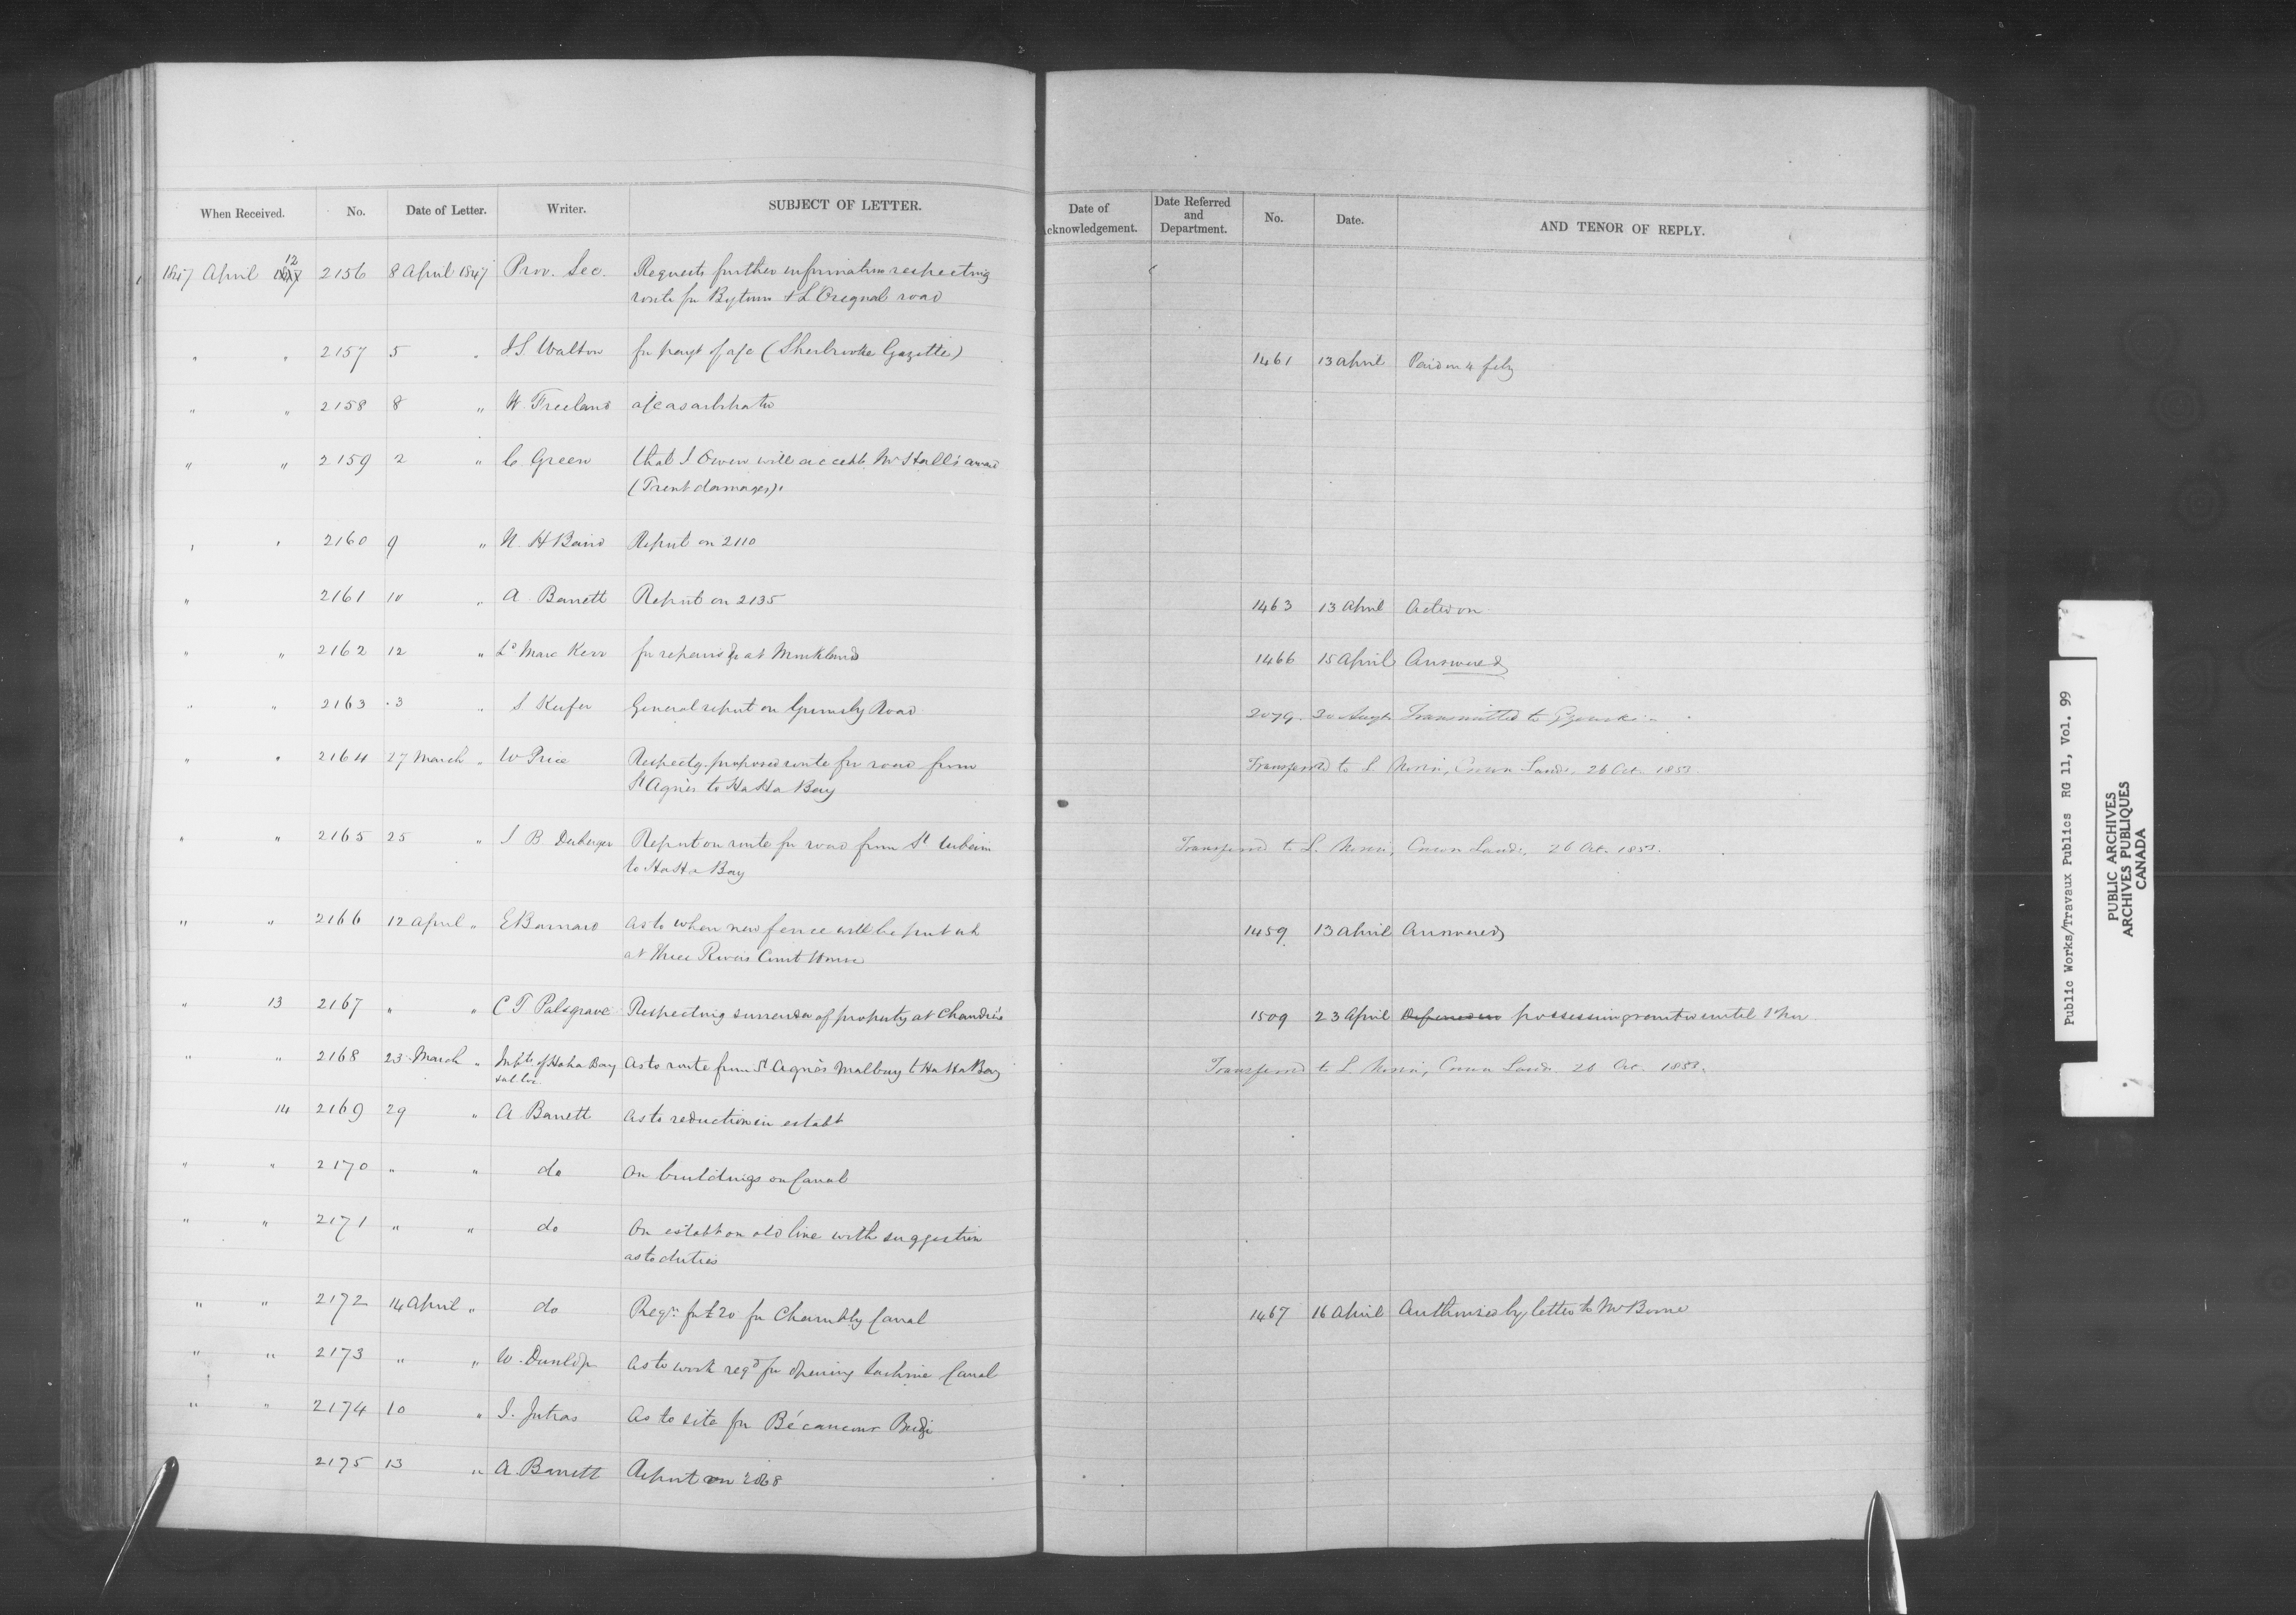 When Received. No. Date of Letter. Writer. SUBJECT OF LETTER. Date of Acknowledgement. Date Referred and Department. No. Date. AND TENOR OF REPLY.
1847 April 12 2156 8 April 1847 Prov. Sec. Requests further information respecting
route for Bytown & L'Orignal road
" " 2157 5 " J S. Walton for payt of a/c (Sherbrooke Gazette) 1461 13 April Paid on 4 feby
" " 2158 8 " W. Freeland a/c as arbitrator
" " 2159 2 " C Green that J Owen will accept Mr Hall's award
(Trent damages).
" " 2160 9 " N. H Baird Report on 2110
" 2161 10 " A Barrett Report on 2135 1463 13 April Acted on
" " 2162 12 " Ld Mark Kerr for repairs &c at Monklands 1466 15 April Answered
" " 2163 3 " S Keefer General report on Grimsby Road 2079 30 Augt Transmitted to Gzowski
" " 2164 27 March " W Price Respectg. proposed route for road from Transferred to L. Morin, Crown Lands, 26 Oct. 1853.
St Agnès to HaHa Bay
" " 2165 25 " J B Duberger Report on route for road from St Urbain Transferred to L. Morin, Crown Lands, 26 Oct. 1853.
to HaHa Bay
" " 2166 12 April " E Barnard as to when new fence will be put up 1459 13 April Answered
at Three Rivers Court House
" 13 2167 " " C T Palsgrave Respecting surrender of property at Chambly 1509 23 April possession until
" " 2168 23 March " Inhts of Haha Bay As to route from St Agnès Malbay to HaHa Bay Transferred to L Morin, Crown Lands 26 Oct. 1853.
14 2169 29 " A Barrett As to reduction in establt
" " 2170 " " do On buildings on Canal
" " 2171 " " do On establt on old line with suggestion
as to duties
" " 2172 14 April " do Reqn for £20 for Chambly Canal 1467 16 April Authorised by letter to Mr Borne
" " 2173 " " W. Dunlop As to work reqd for opening Lachine Canal
" " 2174 10 " J. Jutras As to site for Bécancour Bridge
2175 13 " A. Barrett Report on 2068
Public Works/Travaux Publics RG 11, Vol. 99
PUBLIC ARCHIVES
ARCHIVES PUBLIQUES
CANADA